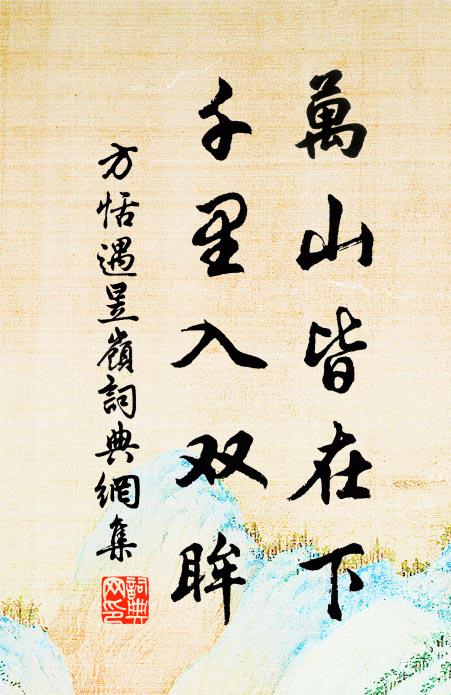 萬山皆在下
千里入双眸
方恬遇昱嶺詞典網集
詞典
网印